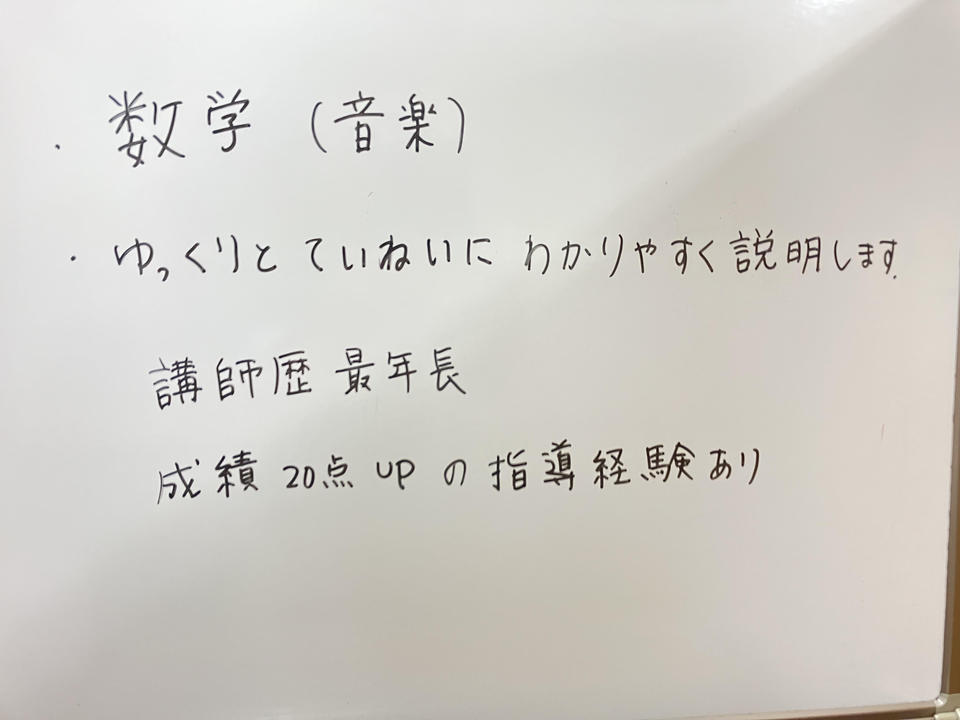 ・数学(音楽)
・ゆっくりとていねいに わかりやすく説明します.
講師歴 最年長
成績 20点 UP の指導経験あり